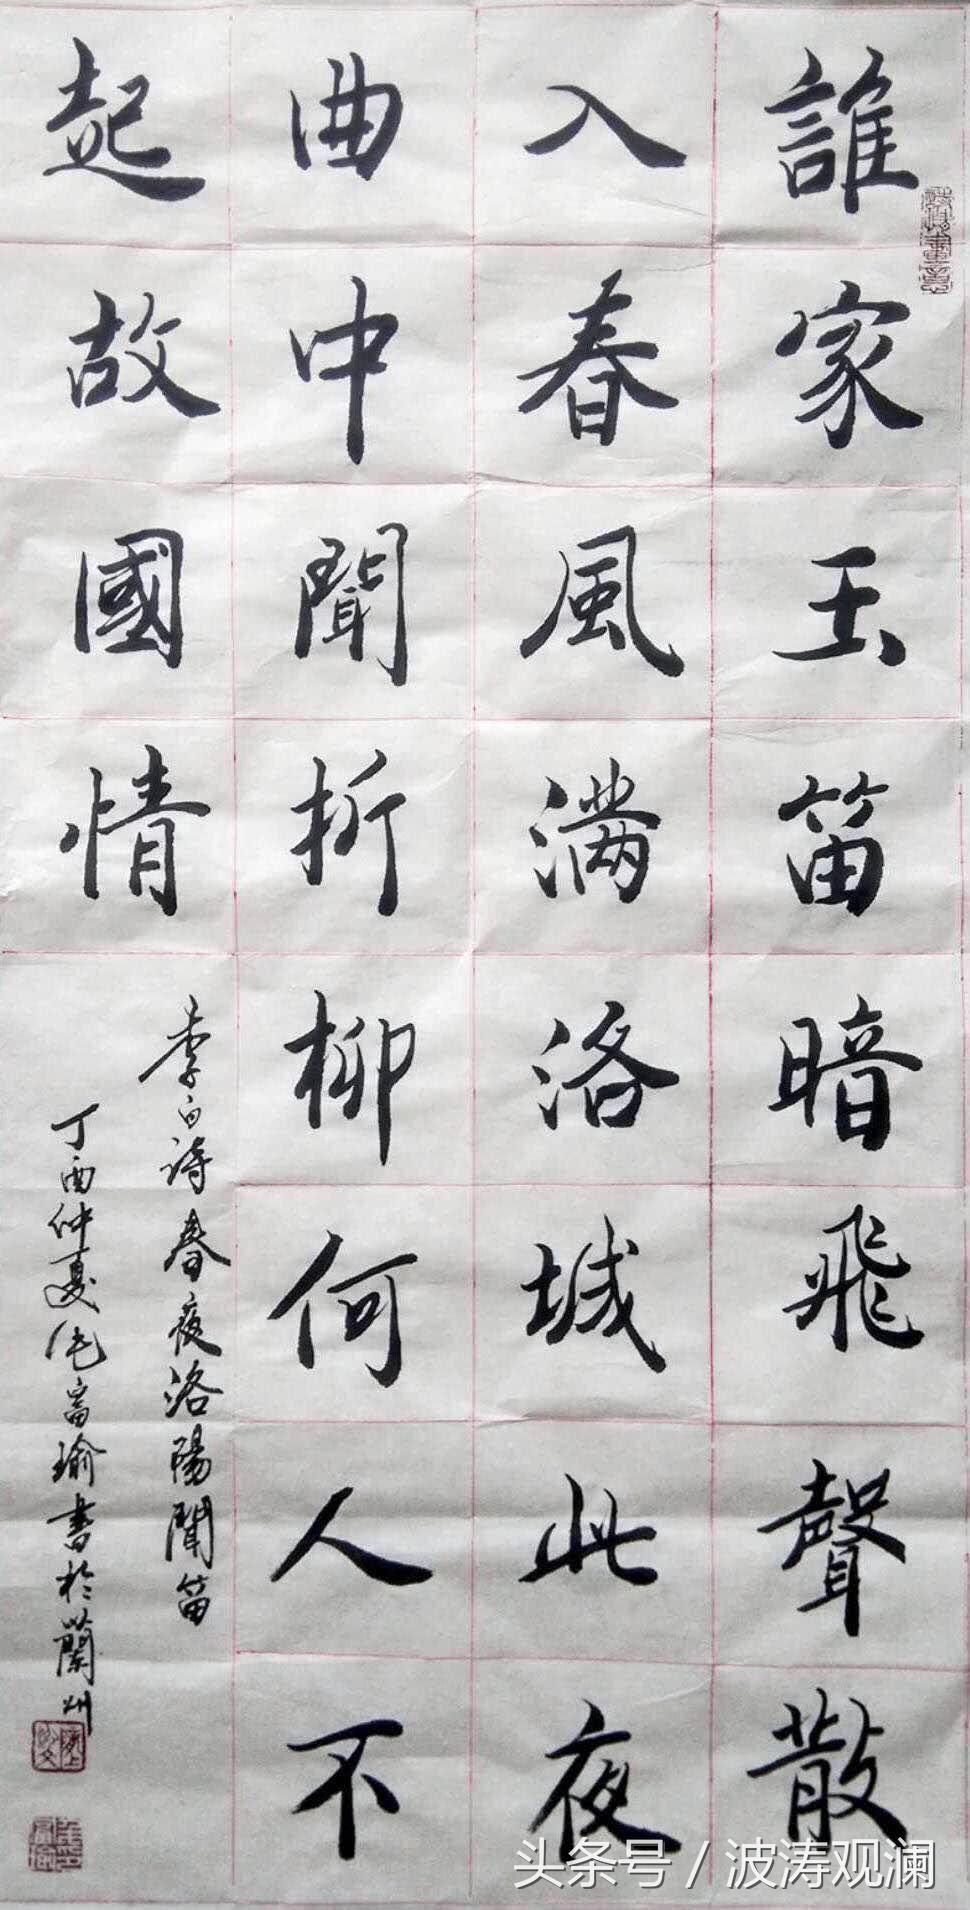 誰家玉笛暗飛聲散
入春風滿洛城此夜
曲中聞折柳何人不
起故國情
李白詩春夜洛陽聞笛
丁酉仲夏富瑜書於蘭州
头条号 / 波涛观澜